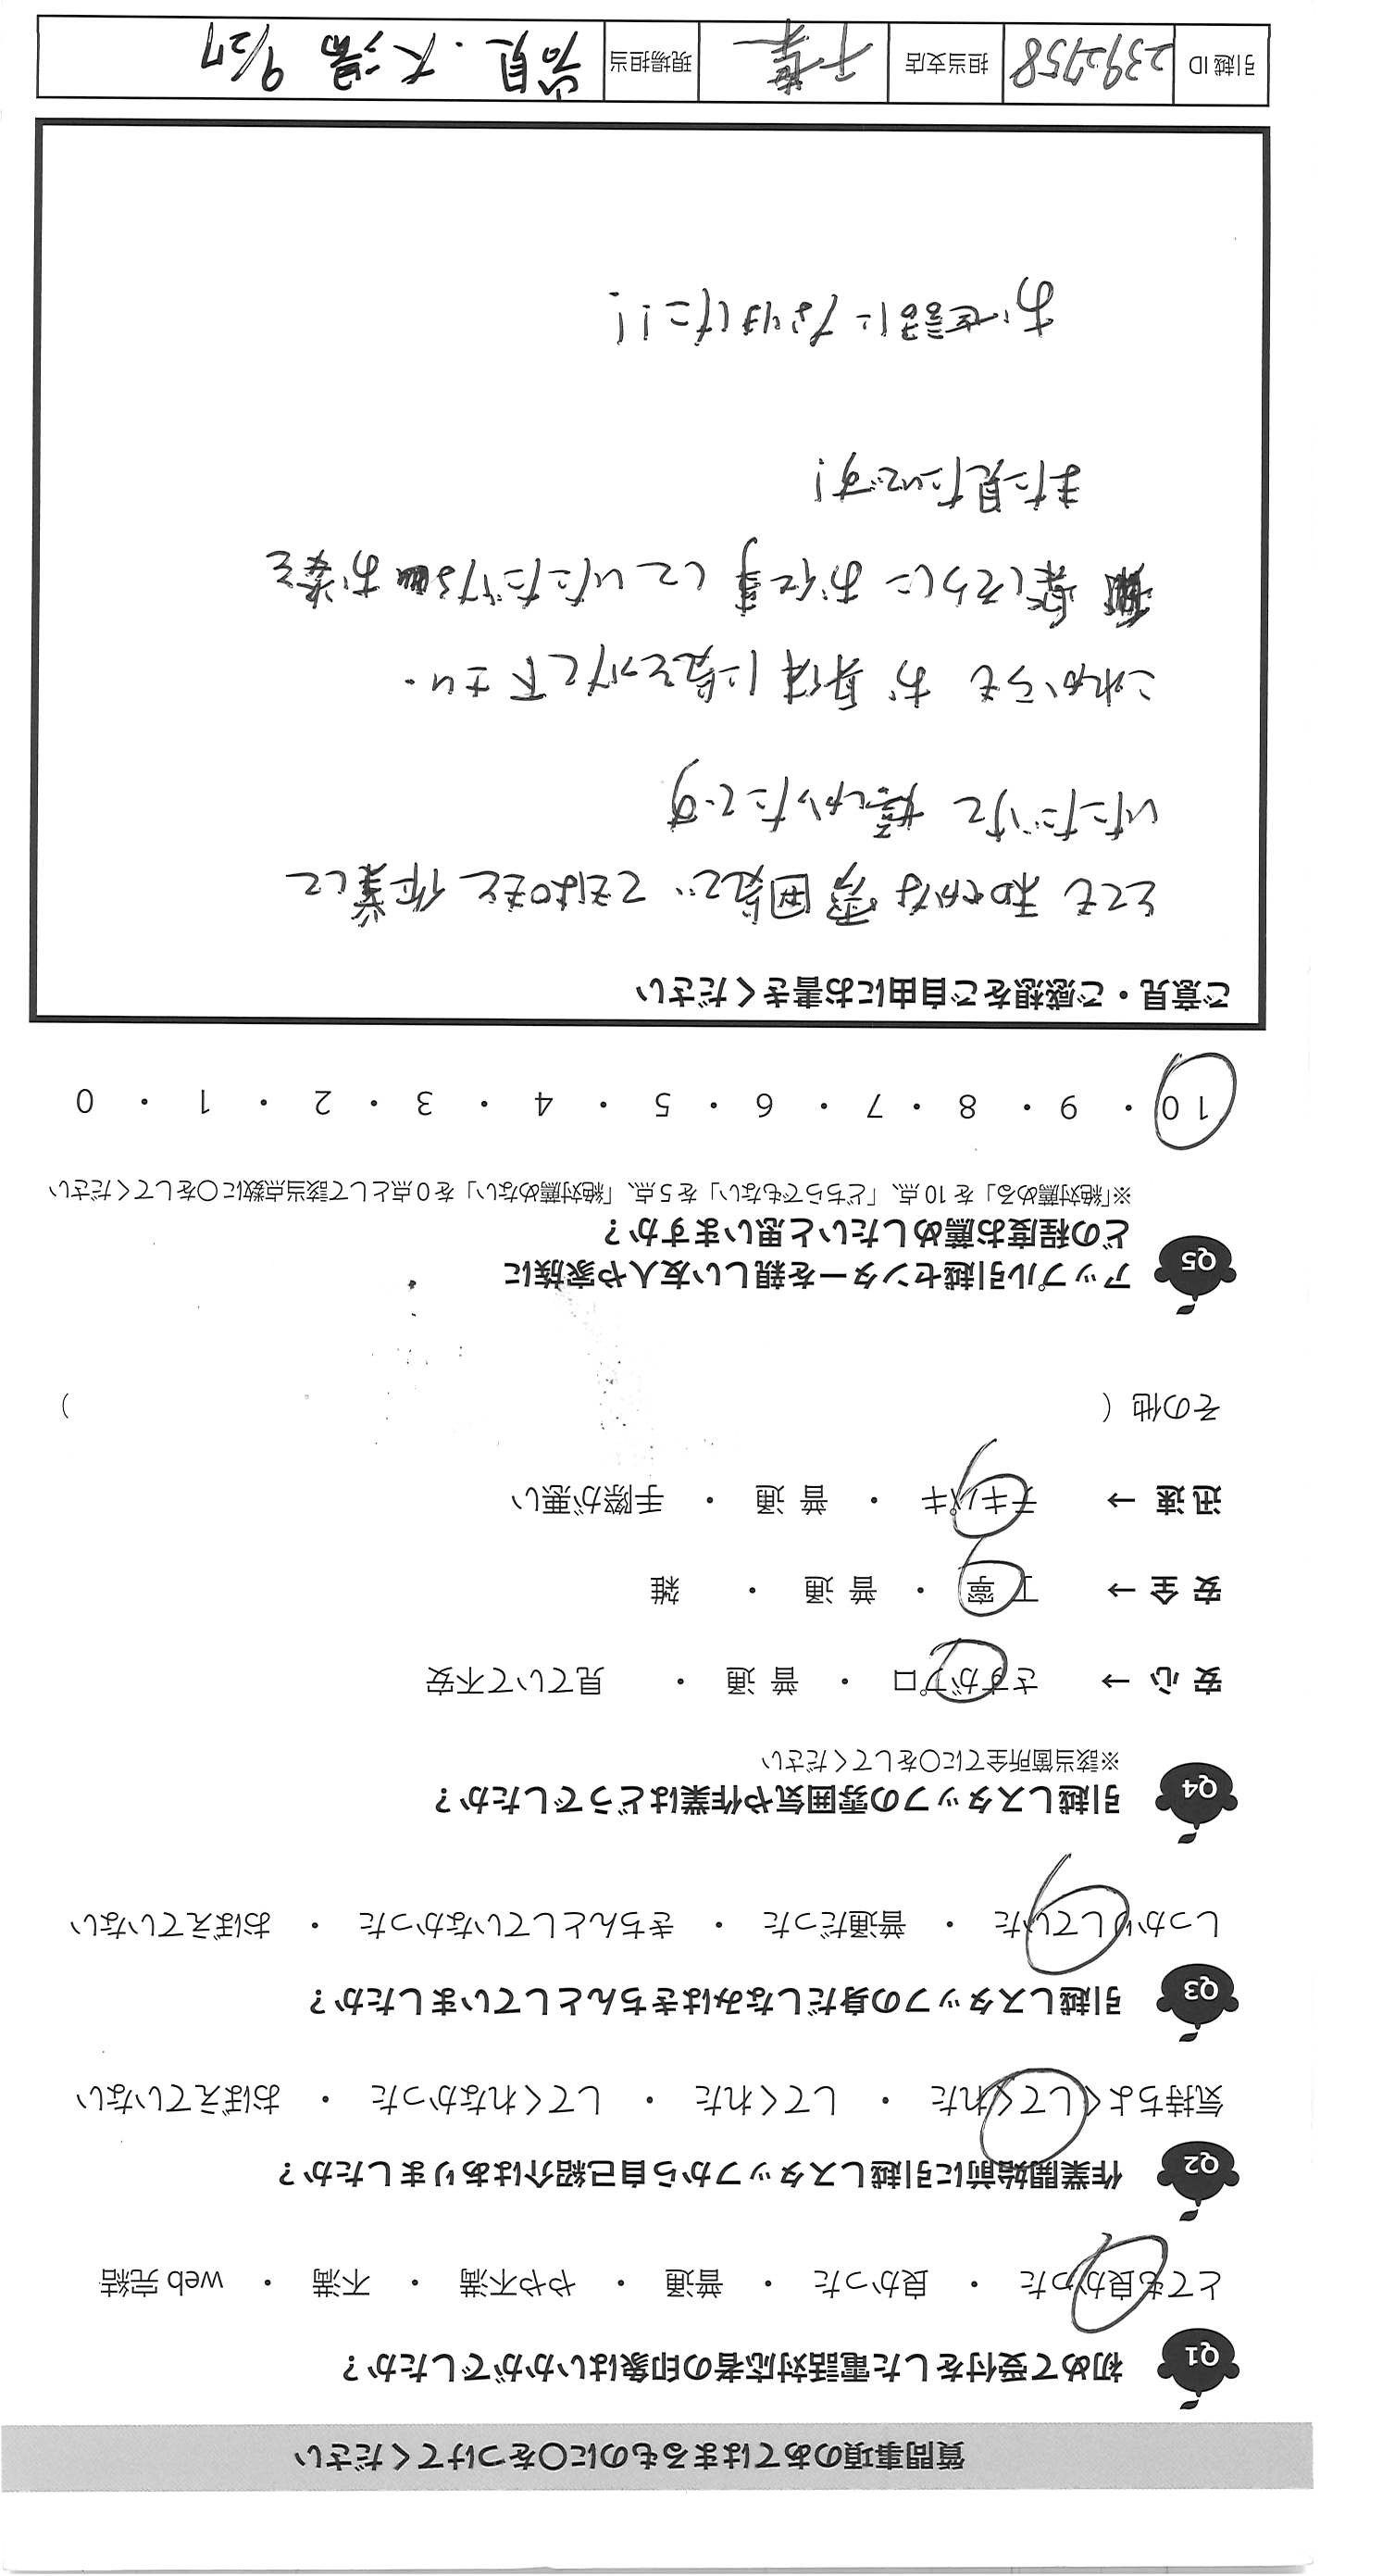 質問事項のあてはまるものに〇をつけてください
Q1 初めて受付をした電話対応者の印象はいかがでしたか?
とても良かった ・ 良かった ・ 普通 ・ やや不満 ・ 不満 ・ web 完結
Q2 作業開始前に引越しスタッフから自己紹介はありましたか?
気持ちよくしてくれた ・ してくれた ・ してくれなかった ・ おぼえていない
Q3 引越しスタッフの身だしなみはきちんとしていましたか?
しっかりしていた ・ 普通だった ・ きちんとしていなかった ・ おぼえていない
Q4 引越しスタッフの雰囲気や作業はどうでしたか?
※該当箇所全てに〇をしてください
安 心 → さすがプロ ・ 普 通 ・ 見ていて不安
安 全 → 丁 寧 ・ 普 通 ・ 雑
迅 速 → テキパキ ・ 普 通 ・ 手際が悪い
その他 ( )
Q5 アップル引越センターを親しい友人や家族に
どの程度お薦めしたいと思いますか?
※「絶対薦める」を 10 点、「どちらでもない」を 5 点、「絶対薦めない」を 0 点として該当点数に〇をしてください
10 ・ 9 ・ 8 ・ 7 ・ 6 ・ 5 ・ 4 ・ 3 ・ 2 ・ 1 ・ 0
ご意見・ご感想をご自由にお書きください
とても 和やかな 雰囲気で てきぱきと 作業して
いただけて 嬉しかったです
これからも お身体に気をつけて下さい.
楽しそうに お仕事 して いただける お姿を
また見たいです!
お世話に なりました!!
引越 ID 2392758 担当支店 千葉 現場担当 大湯 9/27